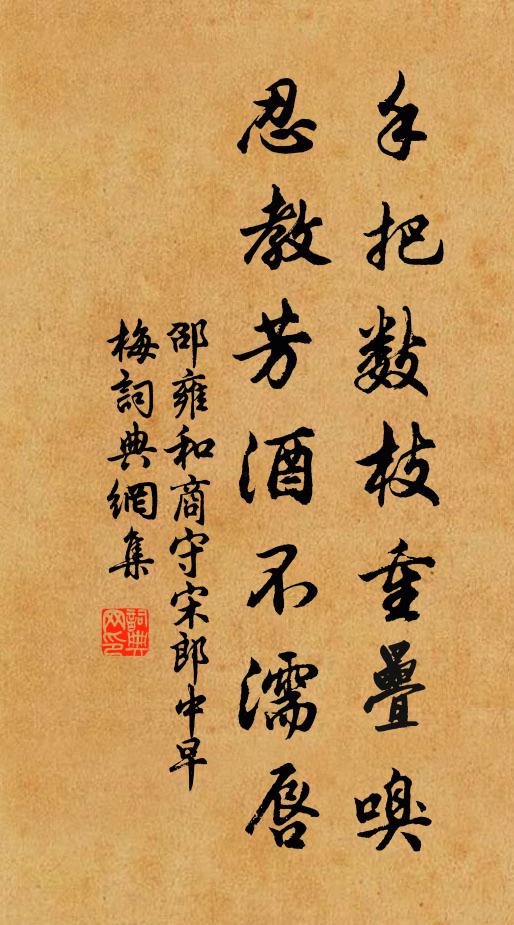 手把数枝重疊嗅
忍教芳酒不濡唇
邵雍和商守宋郎中早
梅詞典網集
詞典網印